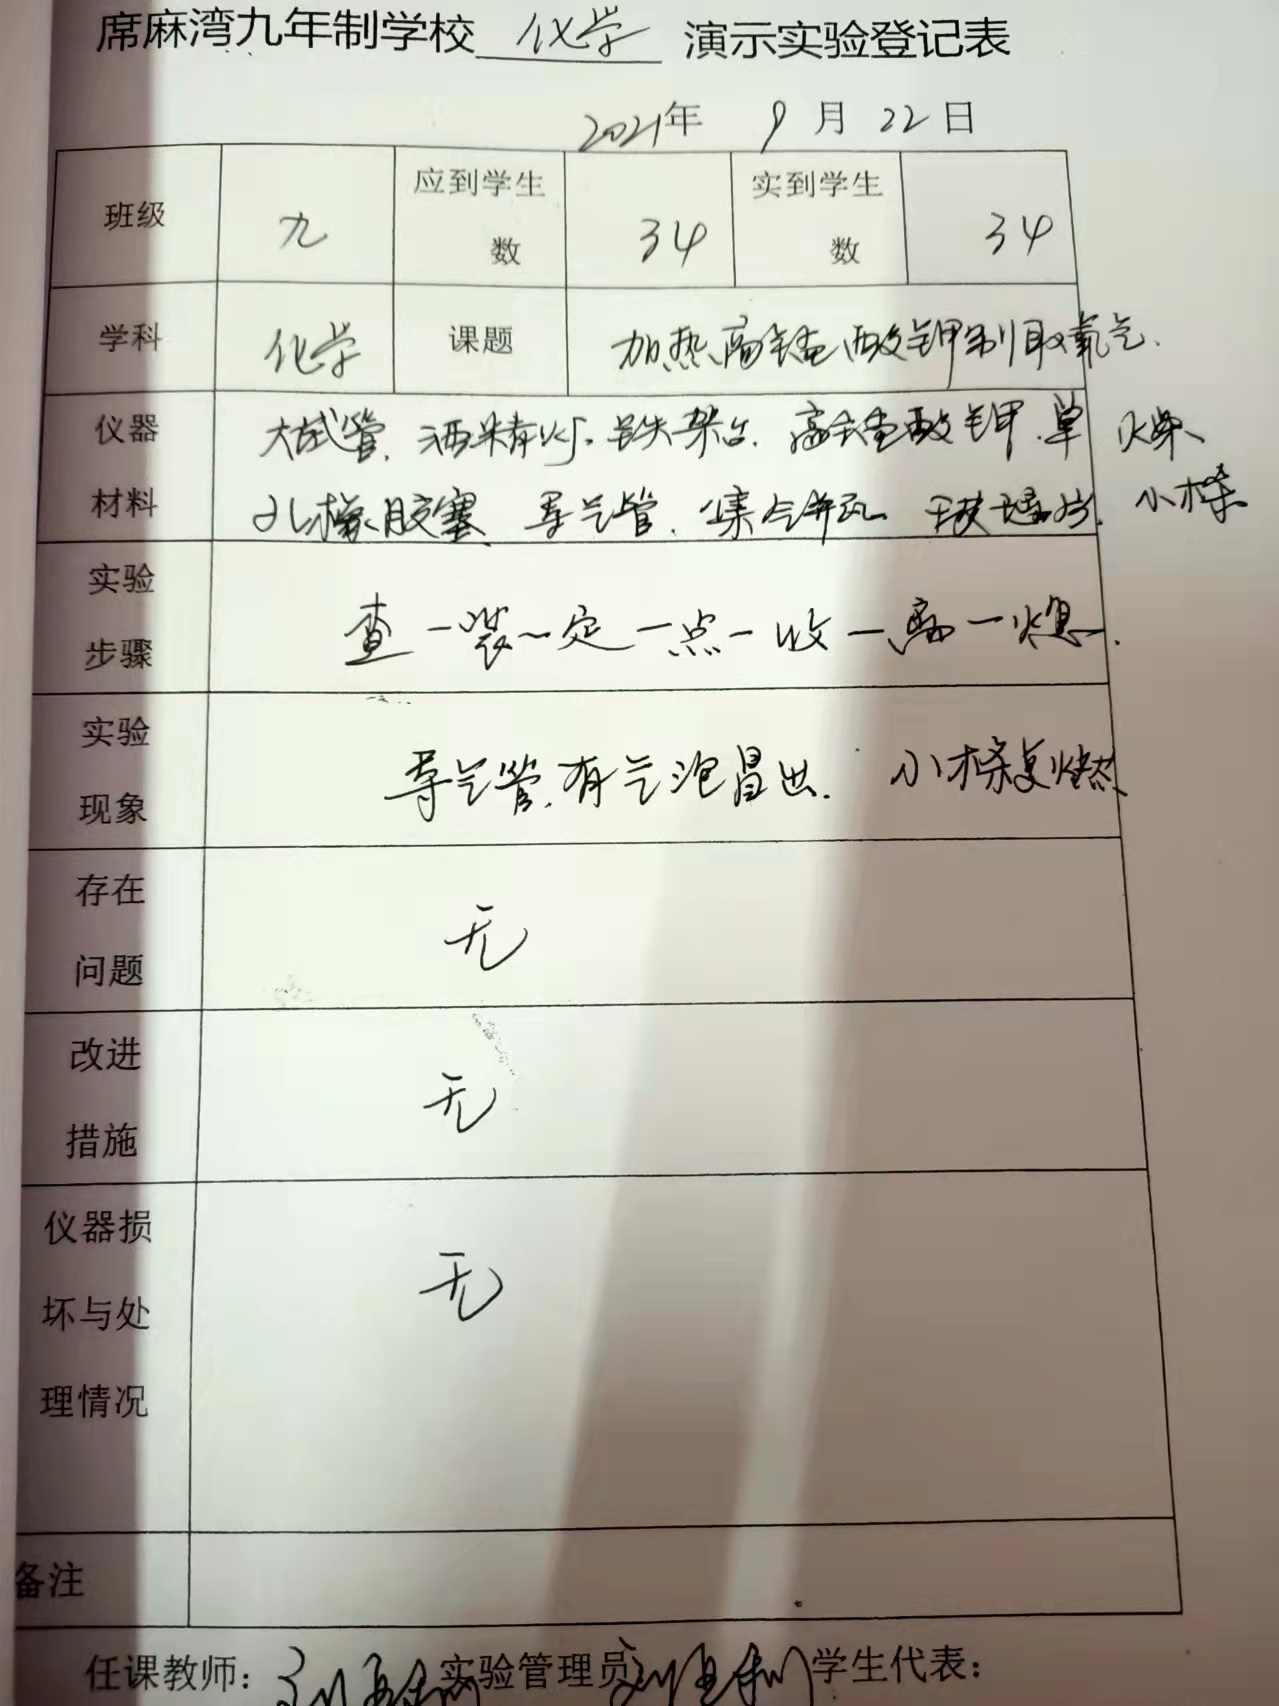 席麻湾九年制学校 化学 演示实验登记表
2021年 9月 22日
班级 九 应到学生数 34 实到学生数 34
学科 化学 课题 加热高锰酸钾制取氧气.
仪器材料 大试管. 酒精灯. 铁架台. 高锰酸钾. 单
孔橡胶塞 导气管. 集气瓶 玻璃片. 小木条
实验步骤 查一装一定一点一收一离一熄.
实验现象 导气管.有气泡冒出. 小木条复燃
存在问题 无
改进措施 无
仪器损坏与处理情况 无
备注
任课教师: 实验管理员 学生代表: